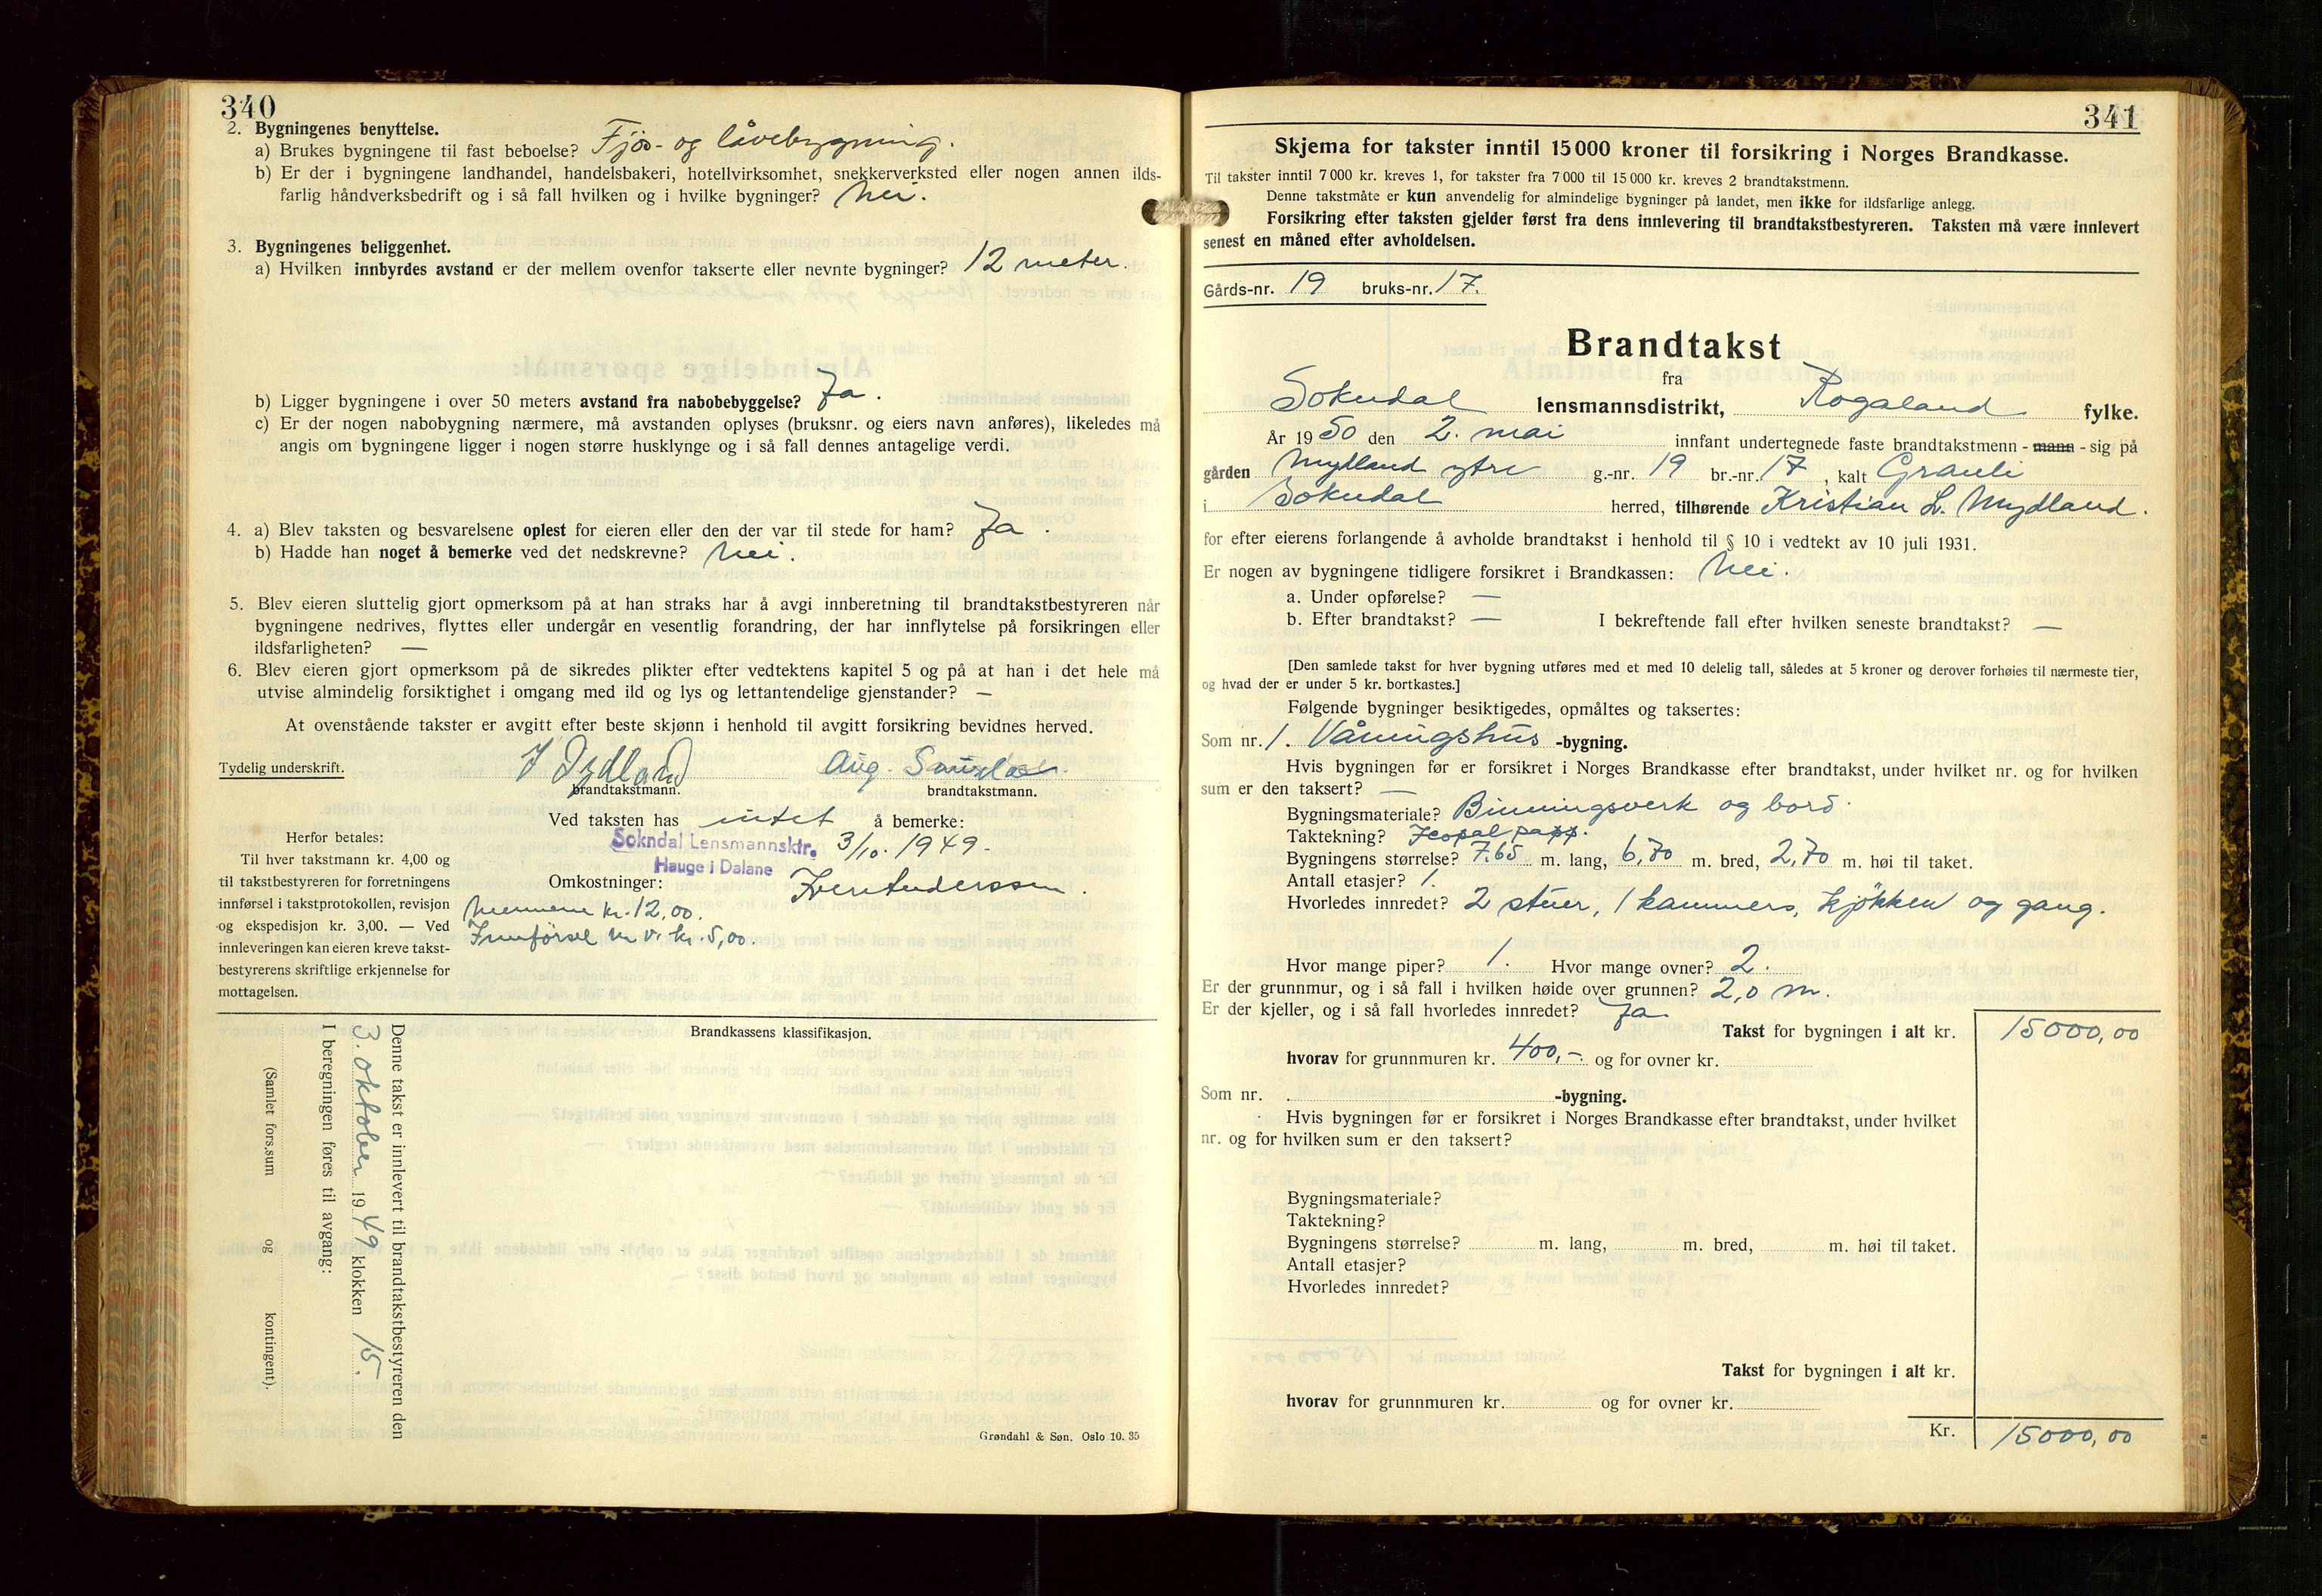 340
2. Bygningenes benyttelse.
a) Brukes bygningene til fast beboelse? Fjøs- og låvebygning.
b) Er der i bygningene landhandel, handelsbakeri, hotellvirksomhet, snekkerverksted eller nogen annen ilds-
farlig håndverksbedrift og i så fall hvilken og i hvilke bygninger? Nei.
3. Bygningenes beliggenhet.
a) Hvilken innbyrdes avstand er der mellem ovenfor takserte eller nevnte bygninger? 12 meter.
b) Ligger bygningene i over 50 meters avstand fra nabobebyggelse? Ja.
c) Er der nogen nabobygning nærmere, må avstanden oplyses (bruksnr. og eiers navn anføres), likeledes må
angis om bygningene ligger i nogen større husklynge og i så fall dennes antagelige verdi.
4. a) Blev taksten og besvarelsene oplest for eieren eller den der var til stede for ham? Ja.
b) Hadde han noget å bemerke ved det nedskrevne? Nei.
5. Blev eieren sluttelig gjort opmerksom på at han straks har å avgi innberetning til brandtakstbestyreren når
bygningene nedrives, flyttes eller undergår en vesentlig forandring, der har innflytelse på forsikringen eller
ildsfarligheten? —
6. Blev eieren gjort opmerksom på de sikredes plikter efter vedtektens kapitel 5 og på at han i det hele må
utvise almindelig forsiktighet i omgang med ild og lys og lettantendelige gjenstander? —
At ovenstående takster er avgitt efter beste skjønn i henhold til avgitt forsikring bevidnes herved.
Tydelig underskrift. Aug.
brandtakstmann. brandtakstmann.
Ved taksten has intet å bemerke:
Sokndal Lensmannsktr. 3/10. 1949.
Hauge i Dalane
Herfor betales:
Til hver takstmann kr. 4,00 og
til takstbestyreren for forretningens
innførsel i takstprotokollen, revisjon
og ekspedisjon kr. 3,00. — Ved
innleveringen kan eieren kreve takst-
bestyrerens skriftlige erkjennelse for
mottagelsen.
Omkostninger:
Mennene kr. 12,00.
Innførsel m.v. kr. 5,00.
Brandkassens klassifikasjon.
Denne takst er innlevert til brandtakstbestyreren den
3. oktober 1949 klokken 15.
I beregningen føres til avgang:
(Samlet fors.sum og kontingent).
Grøndahl & Søn. Oslo 10. 35
341
Skjema for takster inntil 15 000 kroner til forsikring i Norges Brandkasse.
Til takster inntil 7 000 kr. kreves 1, for takster fra 7 000 til 15 000 kr. kreves 2 brandtakstmenn.
Denne takstmåte er kun anvendelig for almindelige bygninger på landet, men ikke for ildsfarlige anlegg.
Forsikring efter taksten gjelder først fra dens innlevering til brandtakstbestyreren. Taksten må være innlevert
senest en måned efter avholdelsen.
Gårds-nr. 19 bruks-nr. 17.
Brandtakst
fra
Sokndal lensmannsdistrikt, Rogaland fylke.
År 1950 den 2. mai innfant undertegnede faste brandtakstmenn - mann - sig på
gården Mydland ytre g.-nr. 19 br.-nr. 17, kalt Granli
i Sokndal herred, tilhørende Kristian L. Mydland.
for efter eierens forlangende å avholde brandtakst i henhold til § 10 i vedtekt av 10 juli 1931.
Er nogen av bygningene tidligere forsikret i Brandkassen: Nei.
a. Under opførelse? —
b. Efter brandtakst? — I bekreftende fall efter hvilken seneste brandtakst? —
[Den samlede takst for hver bygning utføres med et med 10 delelig tall, således at 5 kroner og derover forhøies til nærmeste tier,
og hvad der er under 5 kr. bortkastes.]
Følgende bygninger besiktigedes, opmåltes og taksertes:
Som nr. 1. Våningshus -bygning.
Hvis bygningen før er forsikret i Norges Brandkasse efter brandtakst, under hvilket nr. og for hvilken
sum er den taksert? —
Bygningsmateriale? Binningsverk og bord.
Taktekning? Icopal papp.
Bygningens størrelse? 7.65 m. lang, 6,70 m. bred, 2,70 m. høi til taket.
Antall etasjer? 1.
Hvorledes innredet? 2 stuer, 1 kammers, kjøkken og gang.
Hvor mange piper? 1. Hvor mange ovner? 2.
Er der grunnmur, og i så fall i hvilken høide over grunnen? 2,0 m.
Er der kjeller, og i så fall hvorledes innredet? Ja
Takst for bygningen i alt kr. 15000,00
hvorav for grunnmuren kr. 400,- og for ovner kr.
Som nr. -bygning.
Hvis bygningen før er forsikret i Norges Brandkasse efter brandtakst, under hvilket
nr. og for hvilken sum er den taksert?
Bygningsmateriale?
Taktekning?
Bygningens størrelse? m. lang, m. bred, m. høi til taket.
Antall etasjer?
Hvorledes innredet?
Takst for bygningen i alt kr.
hvorav for grunnmuren kr. og for ovner kr.
Kr. 15000,00